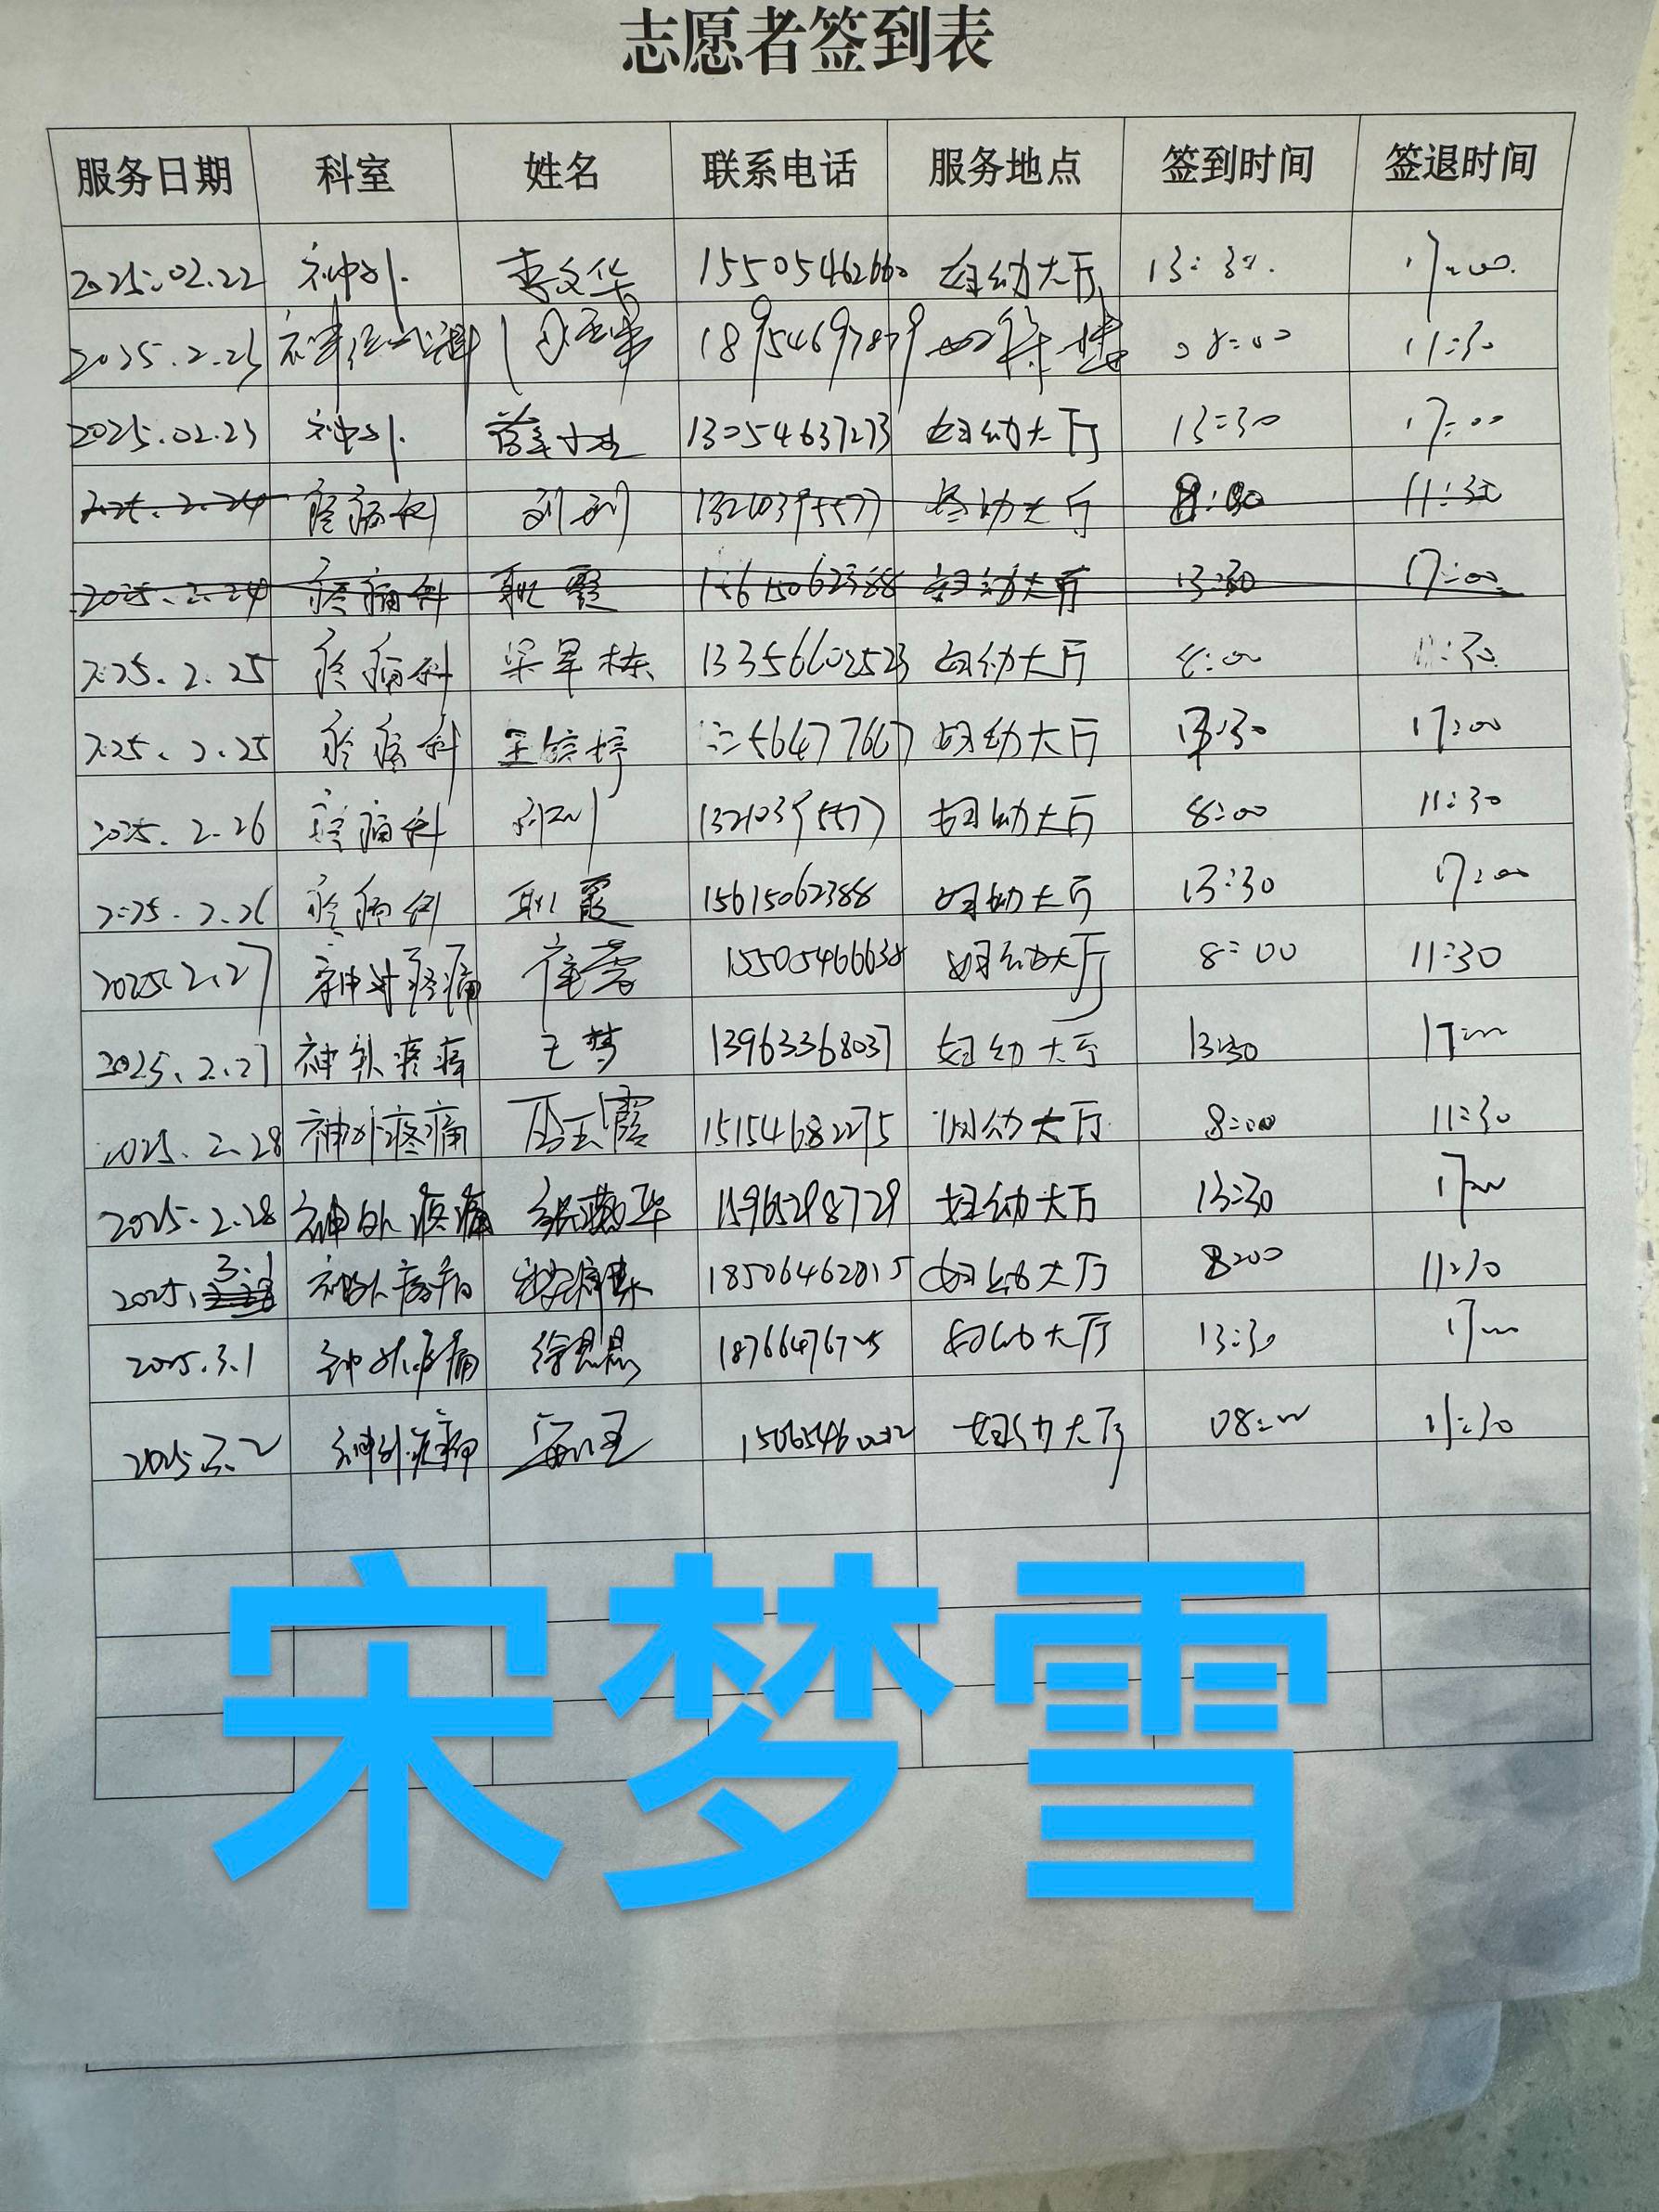 志愿者签到表
服务日期 科室 姓名 联系电话 服务地点 签到时间 签退时间
2025.02.22 神外 李文华 15505462660 妇幼大厅 13:30 17:00
2025.2.23 18954697879 08:00 11:30
2025.02.23 神外 13054637273 妇幼大厅 13:30 17:00
2025.2.24 疼痛科 妇幼大厅 8:00 11:30
2025.2.24 疼痛科 耿霞 15615062388 妇幼大厅 13:30 17:00
2025.2.25 疼痛科 13356602523 妇幼大厅 8:00 11:30
2025.2.25 疼痛科 妇幼大厅 13:30 17:00
2025.2.26 疼痛科 妇幼大厅 8:00 11:30
2025.2.26 疼痛科 耿霞 15615062388 妇幼大厅 13:30 17:00
2025.2.27 神外疼痛 15505466638 妇幼大厅 8:00 11:30
2025.2.27 神外疼痛 王梦 13963368037 妇幼大厅 13:30 17:00
2025.2.28 神外疼痛 15154682275 妇幼大厅 8:00 11:30
2025.2.28 神外疼痛 张燕华 15965298729 妇幼大厅 13:30 17:00
2025.3.1 神外疼痛 18506462015 妇幼大厅 8:00 11:30
2025.3.1 神外疼痛 徐思思 妇幼大厅 13:30 17:00
2025.3.2 神外疼痛 妇幼大厅 08:00 11:30
宋梦雪